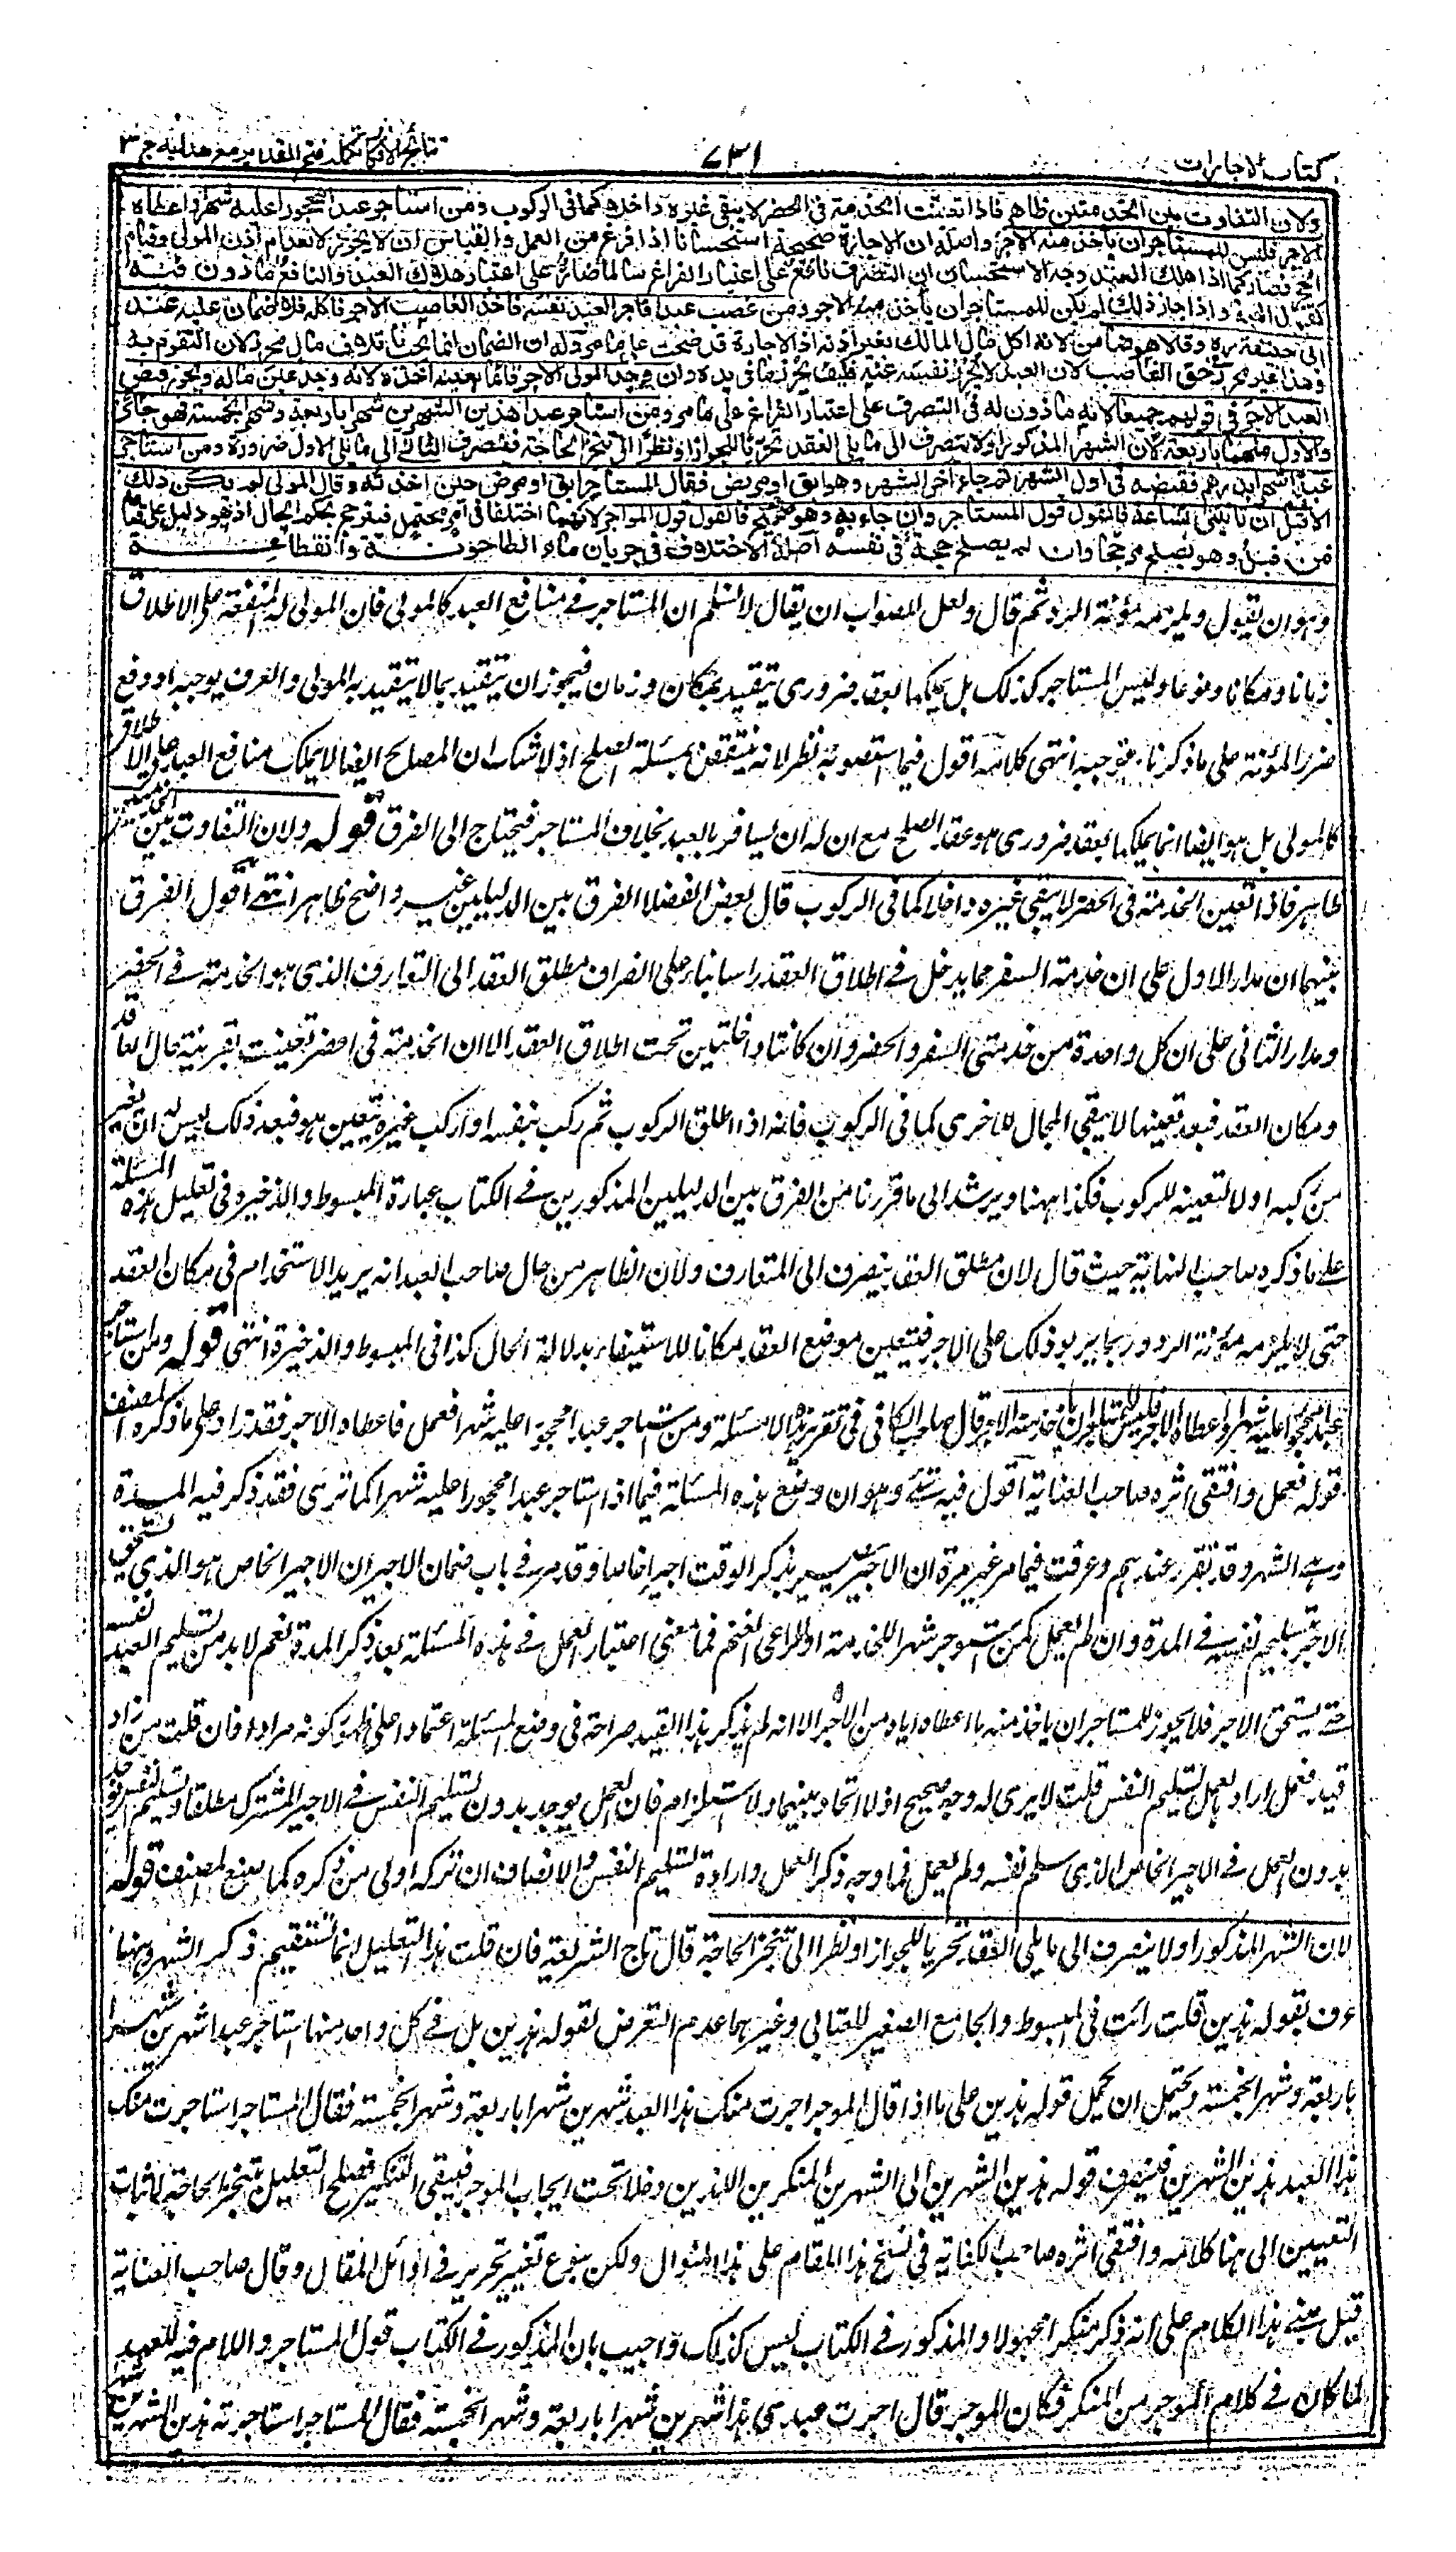 كتاب الاجارات
٧٣١
نتائج الافكار تكملة فتح القدير مع هداية ج ٣
ولان التفاوت بين الخدمتين ظاهر فاذا تعينت الخدمة في الحضر لا يبقى غيره داخلا كما في الركوب ومن استأجر عبدا محجورا عليه شهرا واعطاه
الاجر فليس للمستأجر ان يأخذ منه الاجر واصله ان الاجارة صحيحة استحسانا اذا فرغ من العمل والقياس ان لا يجوز لانعدام اذن المولى وقيام
الحجر فصار كما اذا هلك العبد وجه الاستحسان ان التصرف نافع على اعتبار الفراغ سالما ضار على اعتبار هلاك العبد والنافع ماذون فيه
كقبول الهبة واذا جاز ذلك لم يكن للمستأجر ان يأخذ منه الاجر ومن غصب عبدا فآجر العبد نفسه فأخذ الغاصب الاجر فأكله فلا ضمان عليه عند
ابي حنيفة ره وقالا هو ضامن لانه اكل مال المالك بغير اذنه اذ الاجارة قد صحت على ما مر وله ان الضمان انما يجب باتلاف مال محرز لان التقوم به
وهذا غير محرز في حق الغاصب لان العبد لا يحرز نفسه عنه فكيف يحرز ما في يده وان وجد المولى الاجر قائما بعينه اخذه لانه وجد عين ماله ويجوز قبض
العبد الاجر في قولهم جميعا لانه ماذون له في التصرف على اعتبار الفراغ على ما مر ومن استأجر عبدا هذين الشهرين شهرا باربعة وشهرا بخمسة فهو جائز
والاول منهما باربعة لان الشهر المذكور اولا ينصرف الى ما يلي العقد تحريا للجواز او نظرا الى تنجز الحاجة فينصرف الثاني الى ما يلي الاول ضرورة ومن استأجر
عبدا شهرا بدرهم فقبضه في اول الشهر ثم جاء آخر الشهر وهو آبق او مريض فقال المستأجر ابق او مرض حين اخذته وقال المولى لم يكن ذلك
الا قبل ان تأتيني بساعة فالقول قول المستأجر وان جاء به وهو صحيح فالقول قول المواجر لانهما اختلفا في امر محتمل فيترجح بحكم الحال اذ هو دليل على قيامه
من قبل وهو يصلح مرجحا وان لم يصلح حجة في نفسه اصله الاختلاف في جريان ماء الطاحونة وانقطاعه
وهو ان يقول ويلزمه مؤنة الرد ثم قال ولعل الصواب ان يقال لا نسلم ان المستاجر في منافع العبد كالمولى فان المولى له المنفعة على الاطلاق
زمانا ومكانا ونوعا وليس المستاجر كذلك بل يملكها بعقد ضروري يتقيد بمكان وزمان فيجوز ان يتقيد بما لا يتقيد به المولى والعرف يوجبه او دفع
ضرر المؤنة على ما ذكرنا يوجبه انتهى كلامه اقول فيما استصوبه نظر لانه ينتقض بمسئلة الصلح اذ لا شك ان المصالح ايضا لا يملك منافع العبد على الاطلاق
كالمولى بل هو ايضا انما يملكها بعقد ضروري هو عقد الصلح مع ان له ان يسافر بالعبد بخلاف المستاجر فيحتاج الى الفرق قوله ولان التفاوت بين الخدمتين
ظاهر فاذا تعين الخدمة في الحضر لا يبقى غيره داخلا كما في الركوب قال بعض الفضلاء الفرق بين الدليلين غير واضح ظاهرا انتهى اقول الفرق
بينهما ان مدار الاول على ان خدمة السفر مما يدخل في اطلاق العقد راسا بناء على انصراف مطلق العقد الى التعارف الذي هو الخدمة في الحضر
ومدار الثاني على ان كل واحدة من خدمتي السفر والحضر وان كانتا داخلتين تحت اطلاق العقد الا ان الخدمة في الحضر تعينت بقرينة حال العاقد
ومكان العقد فبعد تعينها لا يبقى المجال للاخرى كما في الركوب فانه اذا اطلق الركوب ثم ركب بنفسه او اركب غيره يتعين هو فبعد ذلك ليس له ان يغير
من ركبه اولا لتعينه للركوب فكذا ههنا ويرشد الى ما قررنا من الفرق بين الدليلين المذكورين في الكتاب عبارة المبسوط والذخيرة في تعليل هذه المسئلة
على ما ذكره صاحب النهاية حيث قال لان مطلق العقد ينصرف الى المتعارف ولان الظاهر من حال صاحب العبد انه يريد الاستخدام في مكان العقد
حتى لا يلزمه مؤنة الرد وربما يربو ذلك على الاجر فيتعين موضع العقد مكانا للاستيفاء بدلالة الحال كذا في المبسوط والذخيرة انتهى قوله ومن استاجر
عبدا محجورا عليه شهرا واعطاه الاجر فليس للمستاجر ان يأخذ منه الاجر قال صاحب الكافي في تقرير هذه المسئلة ومن استاجر عبدا محجورا عليه شهرا فعمل فاعطاه الاجر فقد زاد على ما ذكره المصنف
قوله فعمل واقتفى اثره صاحب العناية اقول فيه شئ وهو ان وضع هذه المسئلة فيما اذا استاجر عبدا محجورا عليه شهرا كما ترى فقد ذكر فيه المدة
وهي الشهر وقد تقرر عندهم وعرفت فيما مر غير مرة ان الاجير يصير بذكر الوقت اجيرا خاصا وقد مر في باب ضمان الاجير ان الاجير الخاص هو الذي يستحق
الاجر بتسليم نفسه في المدة وان لم يعمل كمن استوجر شهرا للخدمة او لرعي الغنم فما معنى اعتبار العمل في هذه المسئلة بعد ذكر المدة نعم لا بد من تسليم العبد نفسه
حتى يستحق الاجر فلا يجوز للمستاجر ان يأخذ منه ما اعطاه اياه من الاجر الا انه لم يذكر هذا القيد صراحة في وضع المسئلة اعتمادا على ظهور كونه مرادا فان قلت من زاد
قيد فعمل اراد بالعمل تسليم النفس قلت لا يرى له وجه صحيح اذ لا اتحاد بينهما ولا استلزام فان العمل يوجد بدون تسليم النفس في الاجير المشترك مطلقا وتسليم النفس يوجد
بدون العمل في الاجير الخاص الذي سلم نفسه ولم يعمل فما وجه ذكر العمل وارادة تسليم النفس والانصاف ان تركه اولى من ذكره كما صنع المصنف قوله
لان الشهر المذكور اولا ينصرف الى ما يلي العقد تحريا للجواز او نظرا الى تنجز الحاجة قال تاج الشريعة فان قلت هذا التعليل انما يستقيم ذكر الشهر وههنا
عرف بقوله هذين قلت رأيت في المبسوط والجامع الصغير للعتابي وغيرهما عدم التعرض لقوله هذين بل في كل واحد منها استاجر عبدا شهرين شهرا
باربعة وشهرا بخمسة ويحتمل ان يحمل قوله هذين على ما اذا قال الموجر اجرت منك هذا العبد شهرين شهرا باربعة وشهرا بخمسة فقال المستاجر استاجرت منك
هذا العبد هذين الشهرين فينصرف قوله هذين الشهرين الى الشهرين المنكرين اللذين دخلا تحت ايجاب الموجر فيبقى التنكير فصلح التعليل بتنجز الحاجة لاثبات
التعيين الى هنا كلامه واقتفى اثره صاحب الكفاية في نسخ هذا المقام على هذا المنوال ولكن بنوع تغيير تحرير في اوائل المقال وقال صاحب العناية
قيل مبنى هذا الكلام على انه ذكر منكرا مجهولا والمذكور في الكتاب ليس كذلك واجيب بان المذكور في الكتاب قول المستاجر واللام فيه للعهد
لما كان في كلام الموجر من المنكر فكان الموجر قال اجرت عبدي هذا شهرين شهرا باربعة وشهرا بخمسة فقال المستاجر استاجرته هذين الشهرين